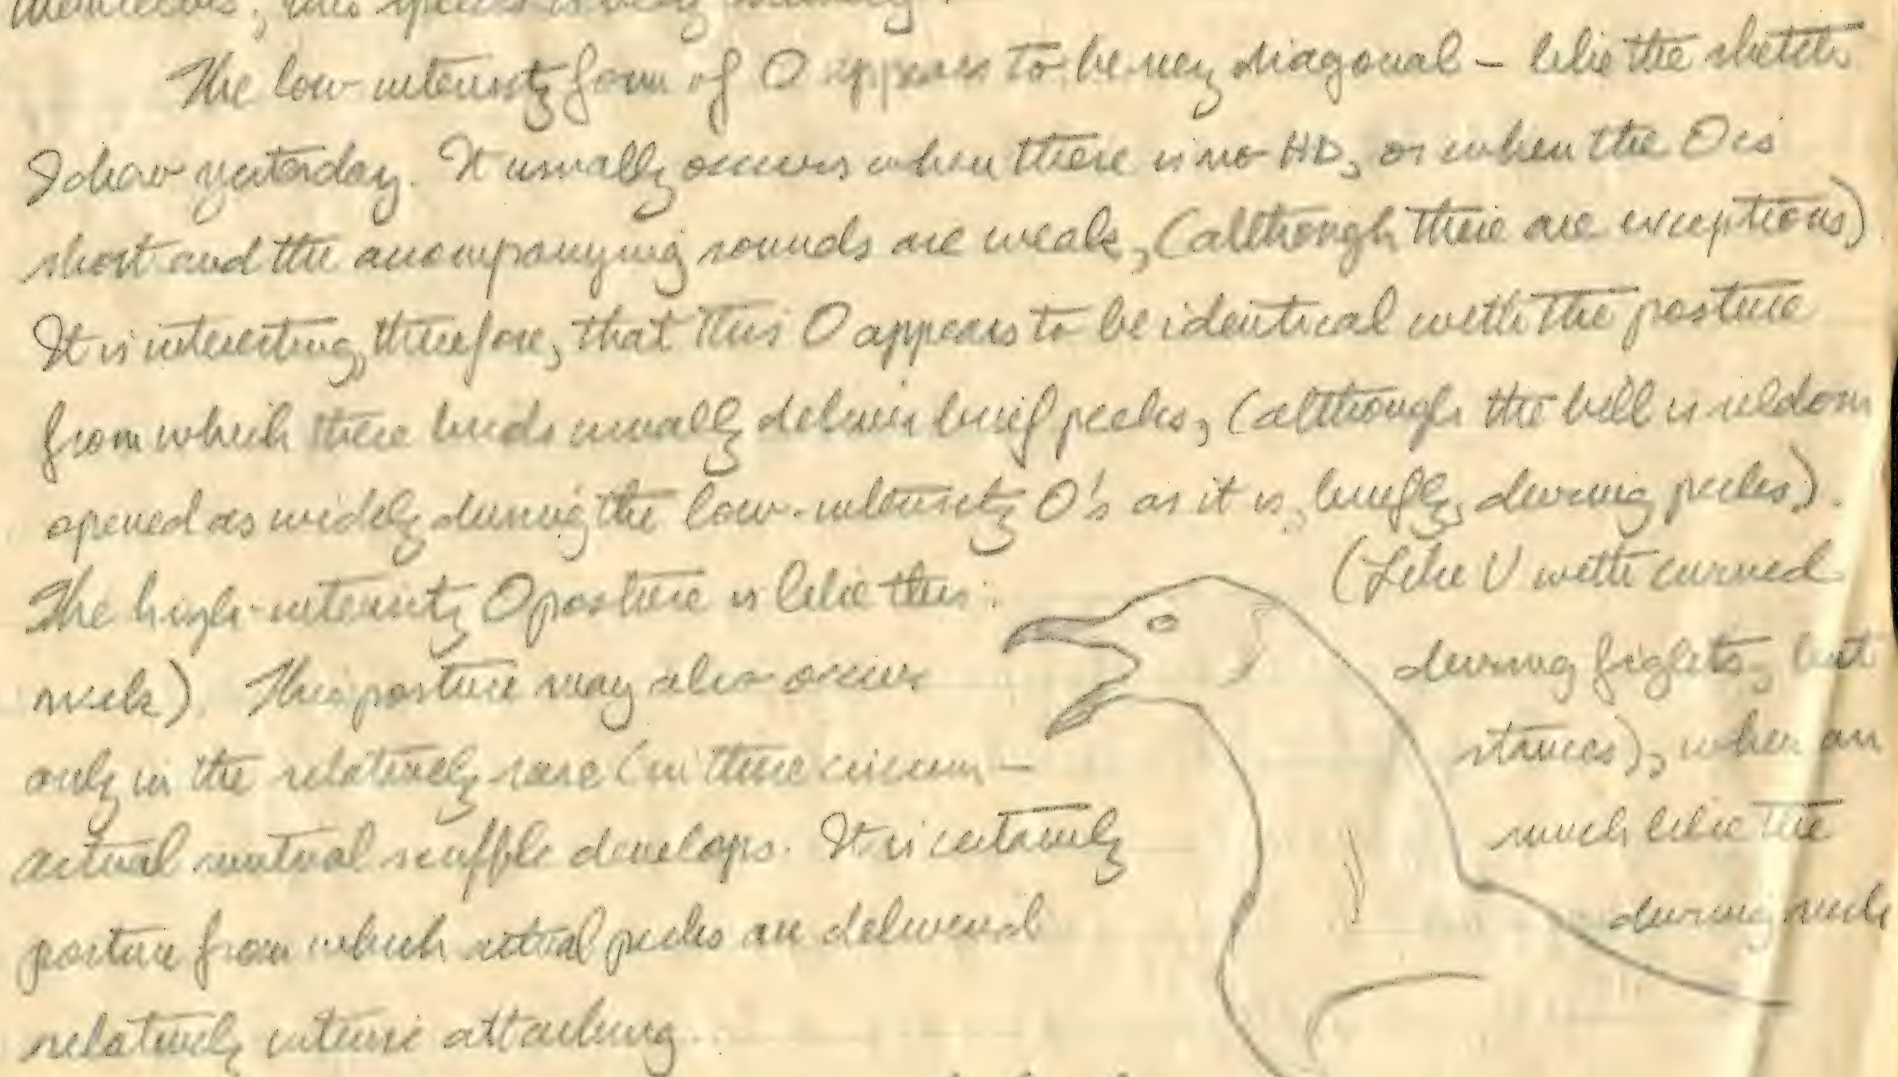 this species is very
The low-intensity form of O appears to be very diagonal - like the sketch
I drew yesterday. It usually occurs when there is no HD, or when the O is
short and the accompanying sounds are weak, (although there are exceptions)
It is interesting, therefore, that this O appears to be identical with the posture
from which these birds usually deliver brief pecks, (although the bill is seldom
opened as widely during the low-intensity O's as it is, briefly, during pecks).
The high-intensity O posture is like this: (Like U with curved
neck). This posture may also occur during fights, but
only in the relatively rare (in these circum- stances), when an
actual mutual scuffle develops. It is certainly much like the
posture from which actual pecks are delivered during such
relatively intense attacking.